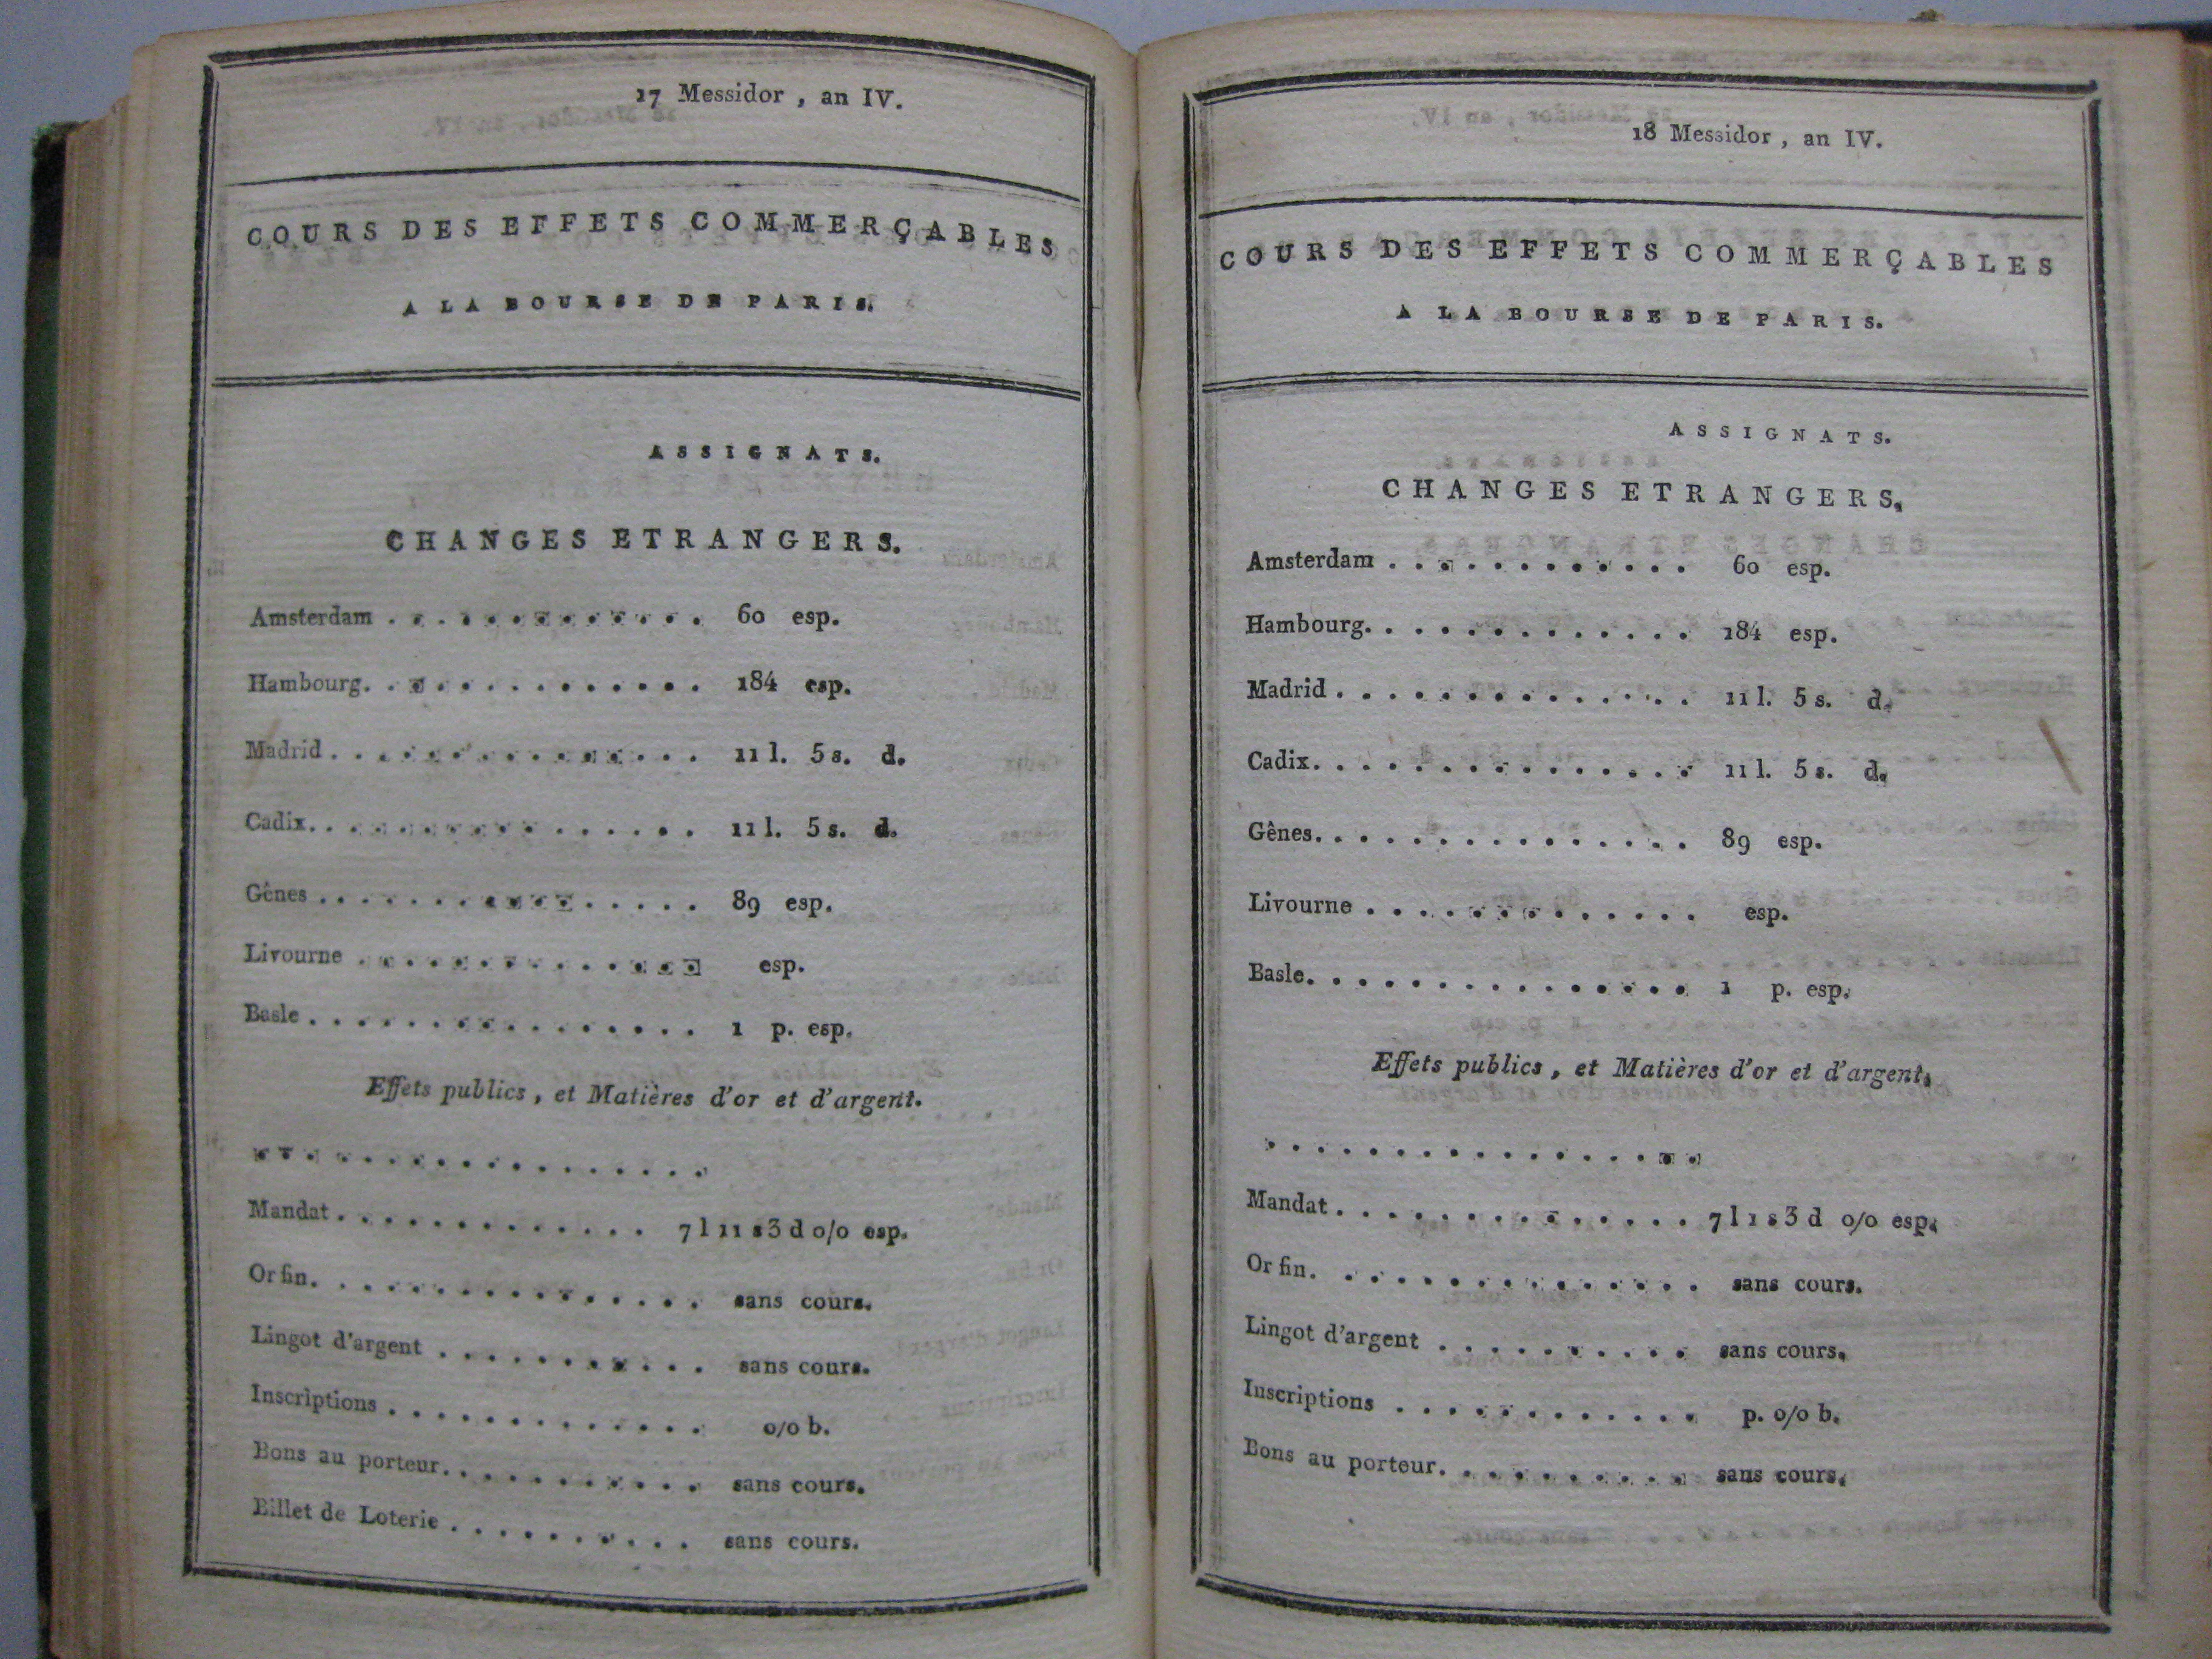 17 Messidor , an IV.
COURS DES EFFETS COMMERÇABLES
A LA BOURSE DE PARIS.
ASSIGNATS.
CHANGES ETRANGERS.
Amsterdam . . . . . . . . . . . . . 60 esp.
Hambourg. . . . . . . . . . . . . 184 esp.
Madrid . . . . . . . . . . . . . . . . 11 l. 5 s. d.
Cadix. . . . . . . . . . . . . . . . 11 l. 5 s. d.
Gênes . . . . . . . . . . . . . . . . 89 esp.
Livourne . . . . . . . . . . . . . . esp.
Basle . . . . . . . . . . . . . . . . 1 p. esp.
Effets publics , et Matières d'or et d'argent.
. . . . . . . . . . . . . . . . . .
Mandat . . . . . . . . . . . . . 7 l 11 s 3 d o/o esp.
Or fin. . . . . . . . . . . . . . . . sans cours.
Lingot d'argent . . . . . . . . . . . sans cours.
Inscriptions . . . . . . . . . . . . . o/o b.
Bons au porteur. . . . . . . . . . . sans cours.
Billet de Loterie . . . . . . . . . . sans cours.
18 Messidor , an IV.
COURS DES EFFETS COMMERÇABLES
A LA BOURSE DE PARIS.
ASSIGNATS.
CHANGES ETRANGERS.
Amsterdam . . . . . . . . . . . . 60 esp.
Hambourg. . . . . . . . . . . . . 184 esp.
Madrid . . . . . . . . . . . . . . 11 l. 5 s. d.
Cadix. . . . . . . . . . . . . . . 11 l. 5 s. d.
Gênes. . . . . . . . . . . . . . . 89 esp.
Livourne . . . . . . . . . . . . . esp.
Basle. . . . . . . . . . . . . . . 1 p. esp.
Effets publics , et Matières d'or et d'argent.
. . . . . . . . . . . . . . . . . .
Mandat . . . . . . . . . . . . . . 7 l 1 s 3 d o/o esp.
Or fin. . . . . . . . . . . . . . . sans cours.
Lingot d'argent . . . . . . . . . . sans cours.
Inscriptions . . . . . . . . . . . . p. o/o b.
Bons au porteur. . . . . . . . . . sans cours.